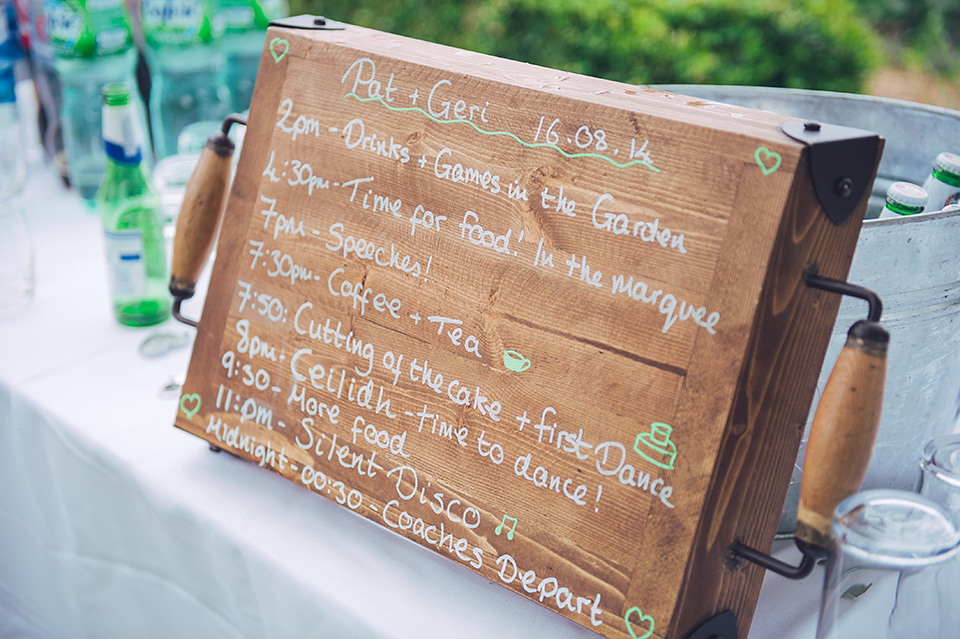 Pat + Geri 16.08.14
2pm - Drinks + Games in the Garden
4:30pm - Time for food! In the marquee
7pm - Speeches!
7:30pm - Coffee + Tea
7:50: Cutting of the cake + first Dance
8pm: Ceilidh - time to dance!
9:30 - More food
11:pm - Silent Disco
Midnight - 00:30 - Coaches Depart